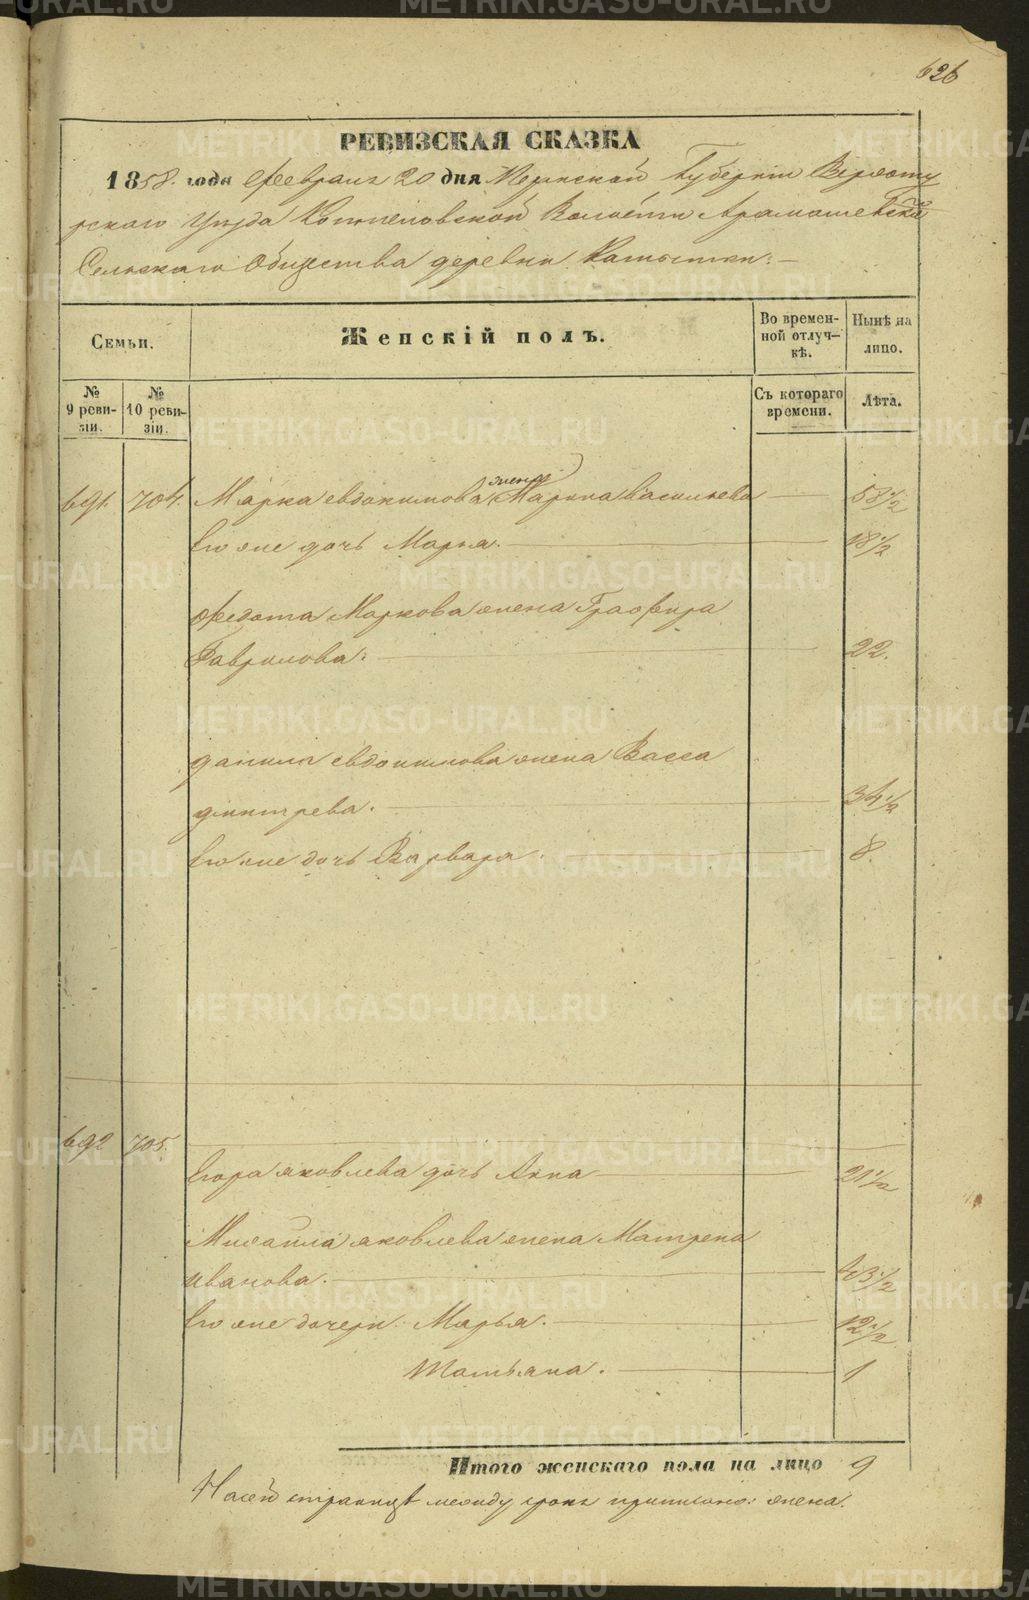 626
РЕВИЗСКАЯ СКАЗКА
1858 года Февраля 20 дня Пермской Губерніи Верхоту
рскаго Уезда Коптеловской Волости Арамашевска
го
Сельскаго Общества деревни Катышки.
Семьи.
Женскій полъ.
Во времен-
ной отлуч-
кѣ.
Нынѣ на
лицо.
№
9 реви-
зіи.
№
10 реви-
зіи.
Съ котораго
времени.
Лѣта.
жена
691. 704. Марка Евдокимова Марина Васильева 53 1/2
Его же дочь Марья. 18 1/2
Федота Маркова жена Глафира
Гаврилова. 22.
Данила Евдокимова жена Васса
Дмитрева. 34 1/2
Его же дочь Варвара. 8.
692 705.
Егора Яковлева дочь Анна 21 1/2
Михаила Яковлева жена Матрена
Иванова. 43 1/2
Его же дочери Марья. 12 1/2
Татьяна. 1
Итого женскаго пола на лицо 9
На сей странице между строк приписано: жена.
METRIKI.GASO-URAL.RU